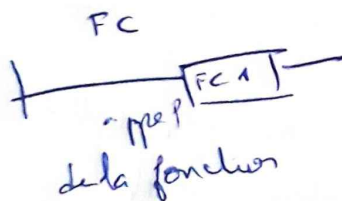 FC
FC1
appel
de la fonction